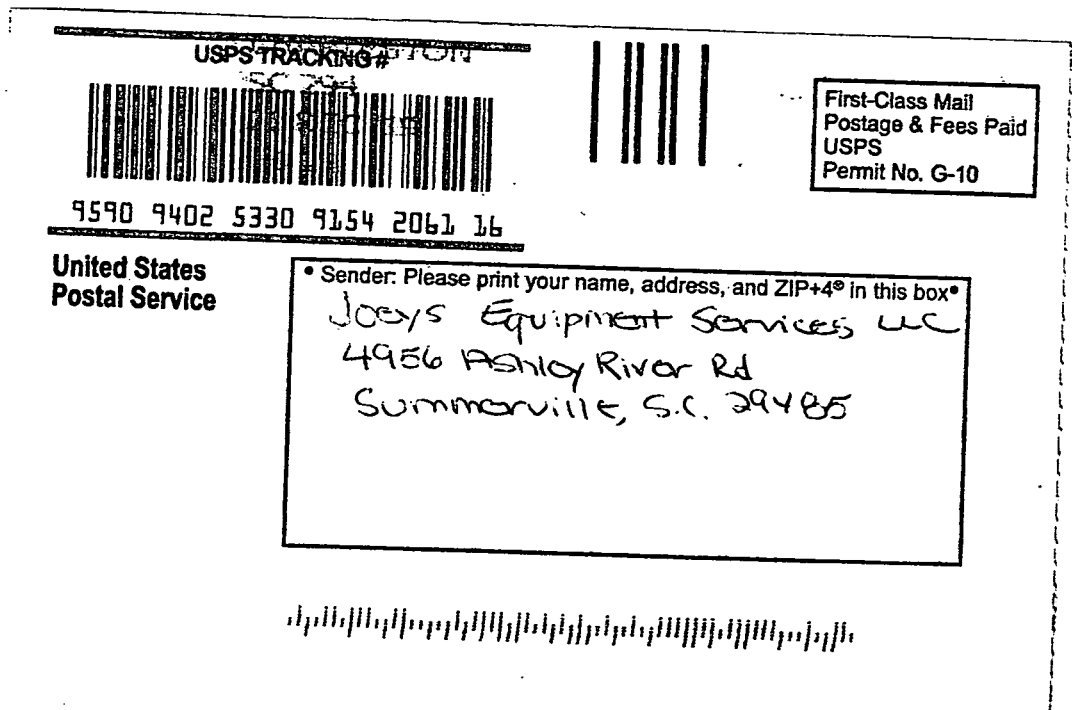 USPS TRACKING #
9590 9402 5330 9154 2061 16
First-Class Mail
Postage & Fees Paid
USPS
Permit No. G-10
United States
Postal Service
• Sender: Please print your name, address, and ZIP+4® in this box•
Joeys Equipment Services LLC
4956 Ashley River Rd
Summerville, S.C. 29485